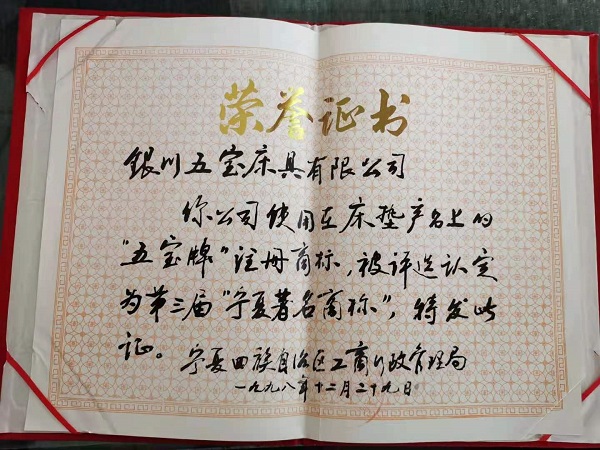 荣誉证书
银川五宝床具有限公司
你公司使用在床垫产品上的
"五宝牌"注册商标,被评选认定
为第三届"宁夏著名商标",特发此
证。
宁夏回族自治区工商行政管理局
一九九八年十二月二十九日